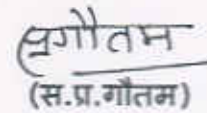 प्रगौतम
(स.प्र.गौतम)